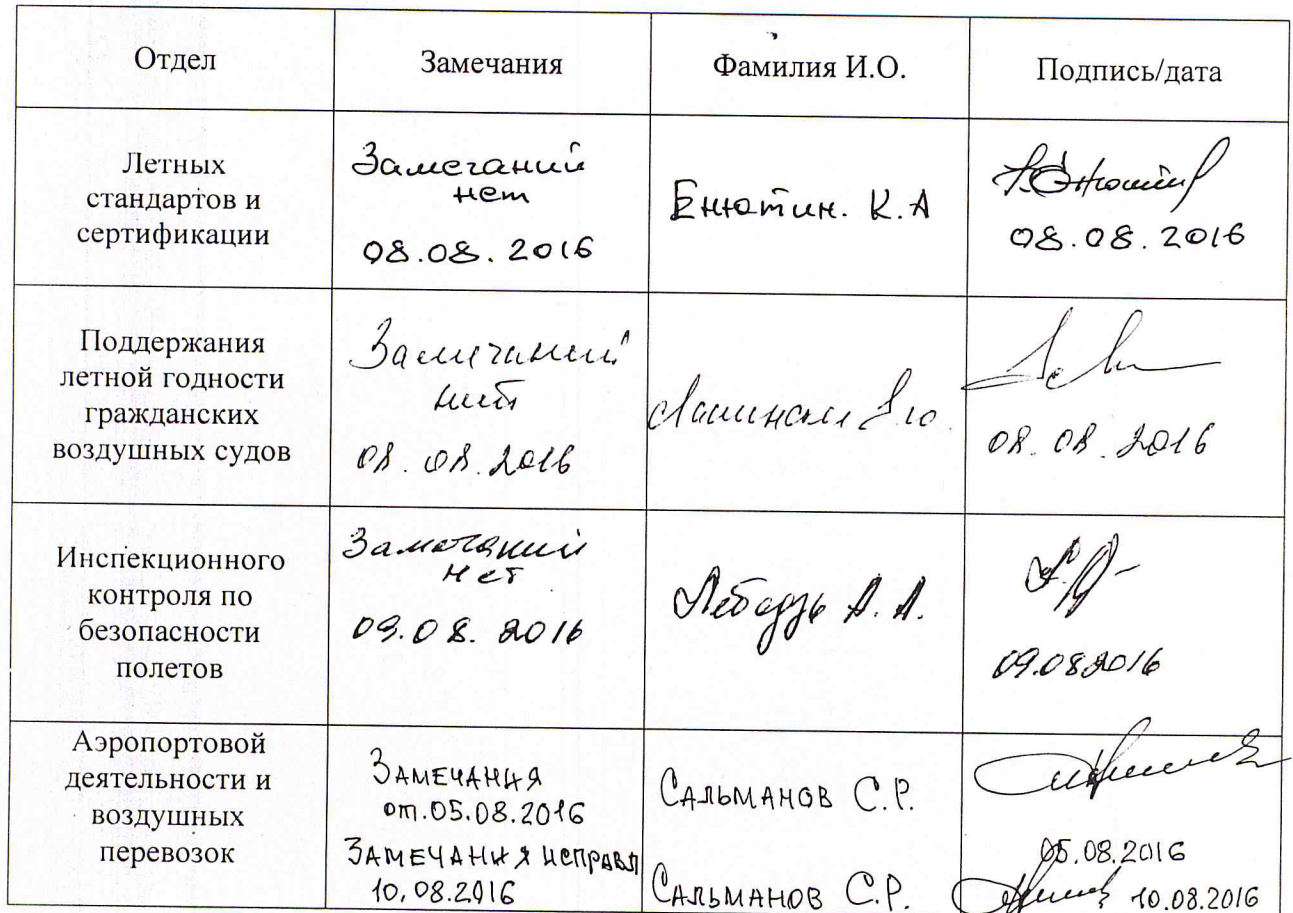 Отдел
Замечания
Фамилия И.О.
Подпись/дата
Летных
стандартов и
сертификации
Замечаний
нет
08.08.2016
Енютин. К.А
08.08.2016
Поддержания
летной годности
гражданских
воздушных судов
Замечаний
нет
08.08.2016
08.08.2016
Инспекционного
контроля по
безопасности
полетов
Замечаний
нет
09.08.2016
Лебедзь А.А.
09.08.2016
Аэропортовой
деятельности и
воздушных
перевозок
ЗАМЕЧАНИЯ
от.05.08.2016
ЗАМЕЧАНИЯ ИСПРАВЛ
10.08.2016
САЛЬМАНОВ С.Р.
САЛЬМАНОВ С.Р.
05.08.2016
10.08.2016